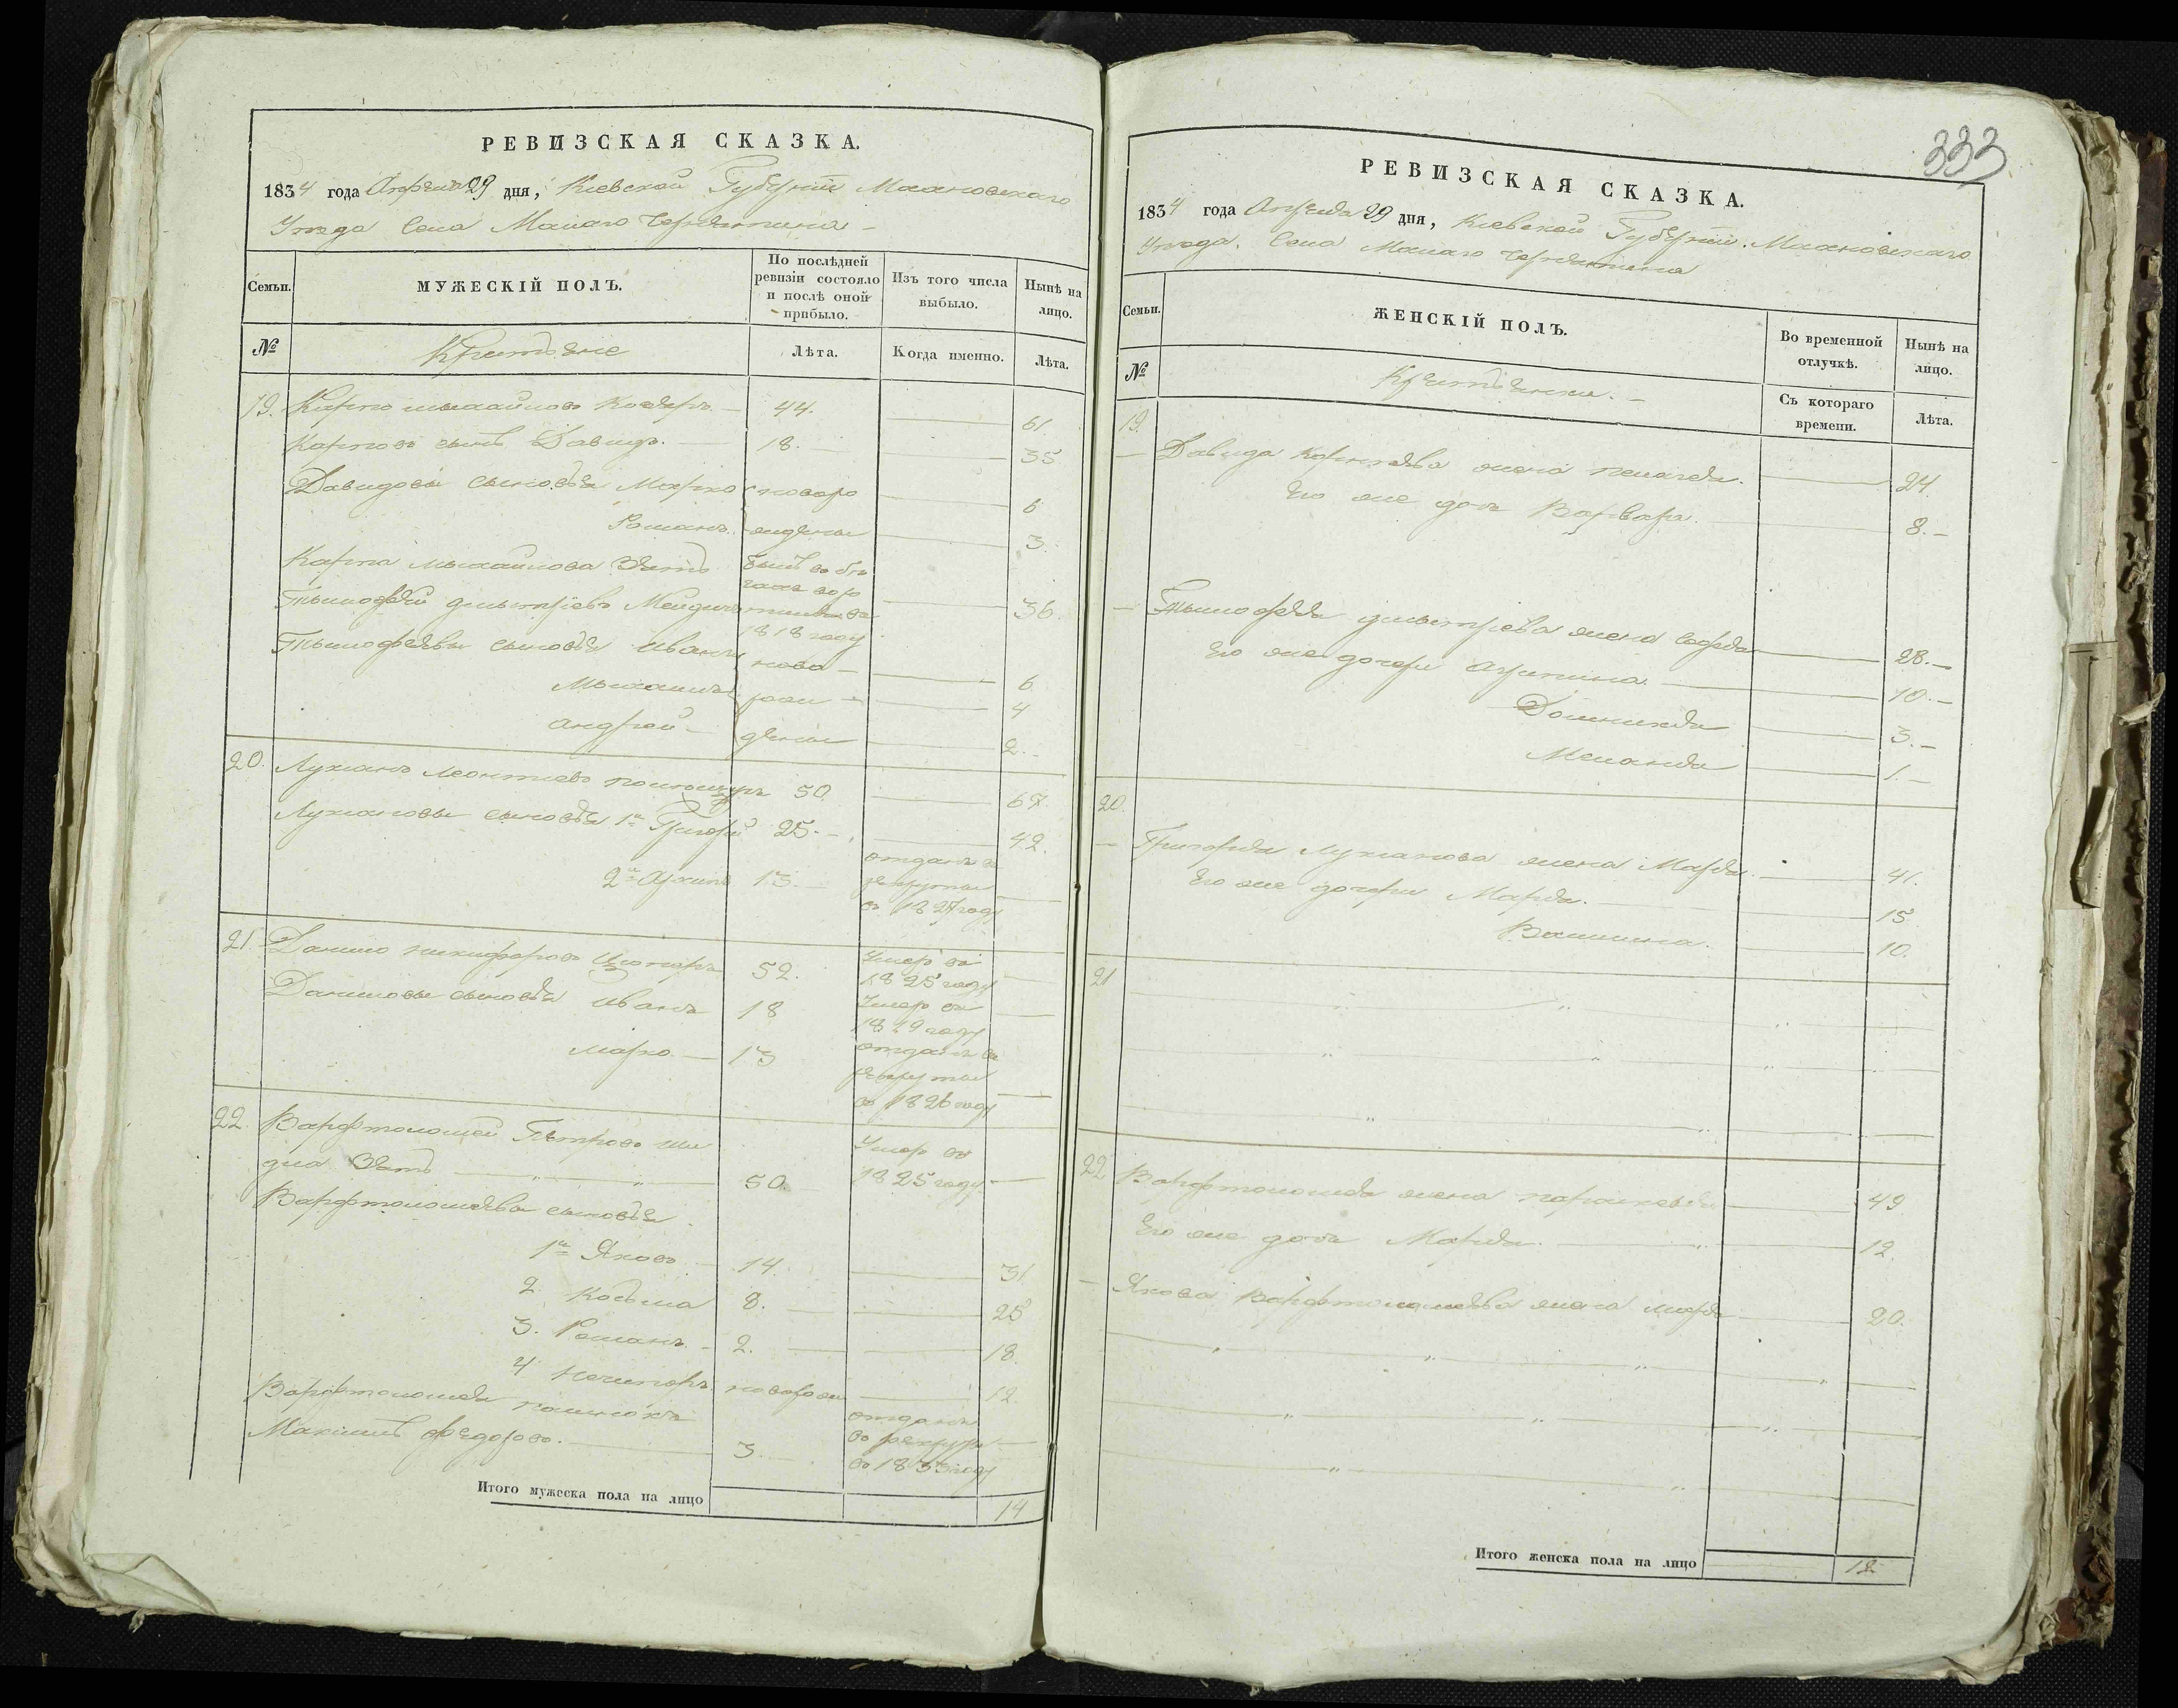 РЕВИЗСКАЯ СКАЗКА.
1834 года Апреля 29 дня, Кіевской Губерніи Махновскаго
Уезда Села Малаго Чернятина
Семьи. МУЖЕСКІЙ ПОЛЪ. По послѣдней ревизіи состояло и послѣ оной прибыло. Изъ того числа выбыло. Нынѣ на лицо.
№ Крестьяне Лѣта. Когда именно. Лѣта.
19. Карпо Михайловъ 44. 61
Карповъ сынъ Давидъ. 18. 35
Давидовы сыновья Марко новоро 6
Романъ. ждены 3.
Карпа Михайлова Зять былъ въ бѣ
гахъ
Тымофей Дмытріевъ 36
1818 году
Тымофеевы сыновья Иванъ ново 6
Михаилъ рож 4
Андрей дены 2.
20. Лукіанъ Леонтіевъ 50 67.
Лукіановы сыновья 1й Григорій 25. 42.
2й Архипъ 13. отданъ въ
рекруты
въ 1827 году
21. Данило Никифоровъ 52. Умеръ въ
1825 году
Даниловы сыновья Иванъ 18 Умеръ въ
1819 году
Марко 13 отданъ въ
рекруты
въ 1826 году
22. Варфтоломей Петровъ
Зять 50. Умеръ въ
1825 году
Варфтоломеевы сыновья
1й Яковъ 14. 31
2 Козьма 8. 25
3. Романъ 2. 18.
4 Нечипоръ новорож 12
Варфтоломея
Максимъ Федоровъ. 3 отданъ
въ рекруты
въ 1833 году
Итого мужеска пола на лицо 14
333
РЕВИЗСКАЯ СКАЗКА.
1834 года Апреля 29 дня, Кіевской Губерніи. Махновскаго
Уезда. Села Малаго Чернятина
Семьи. ЖЕНСКІЙ ПОЛЪ. Во временной отлучкѣ. Нынѣ на лицо.
№ Крестьянки. Съ котораго времени. Лѣта.
19.
Давида Карпова жена Пелагея. 24.
Его же дочь Варвара. 8.
Тымофея Дмытріева жена Софія 28.
Его же дочери Агрипина. 10.
Домникія 3.
Меланія 1.
20.
Григорія Лукіанова жена Марія. 41.
Его же дочери Марія. 15
10.
21
22 Варфтоломея жена Параскевія 49
Его же дочь Марія. 12.
Якова Варфтоломеева жена Марія 20.
Итого женска пола на лицо 12